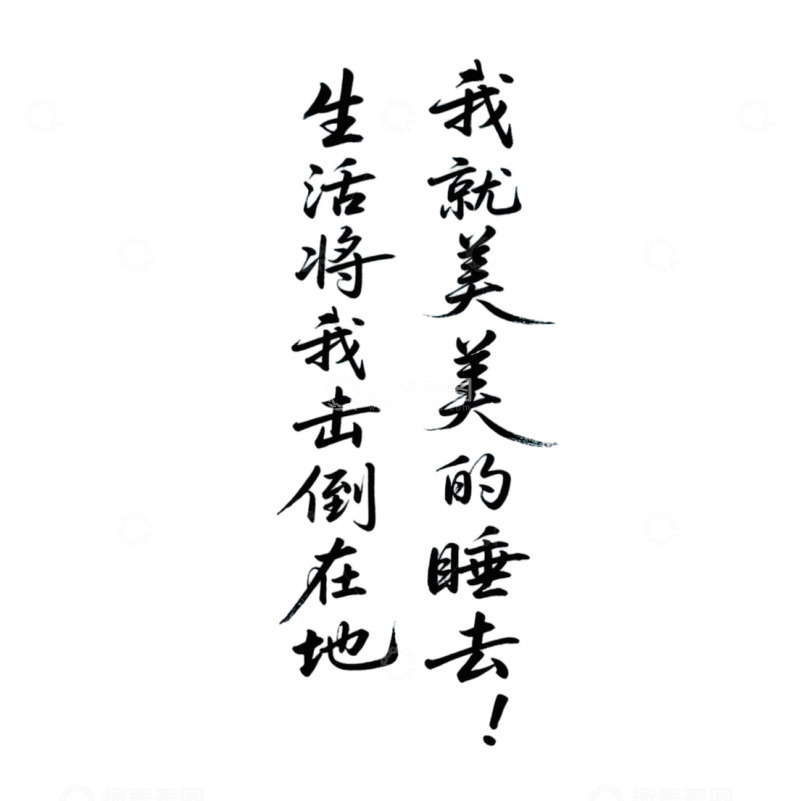 生活将我击倒在地
我就美美的睡去！